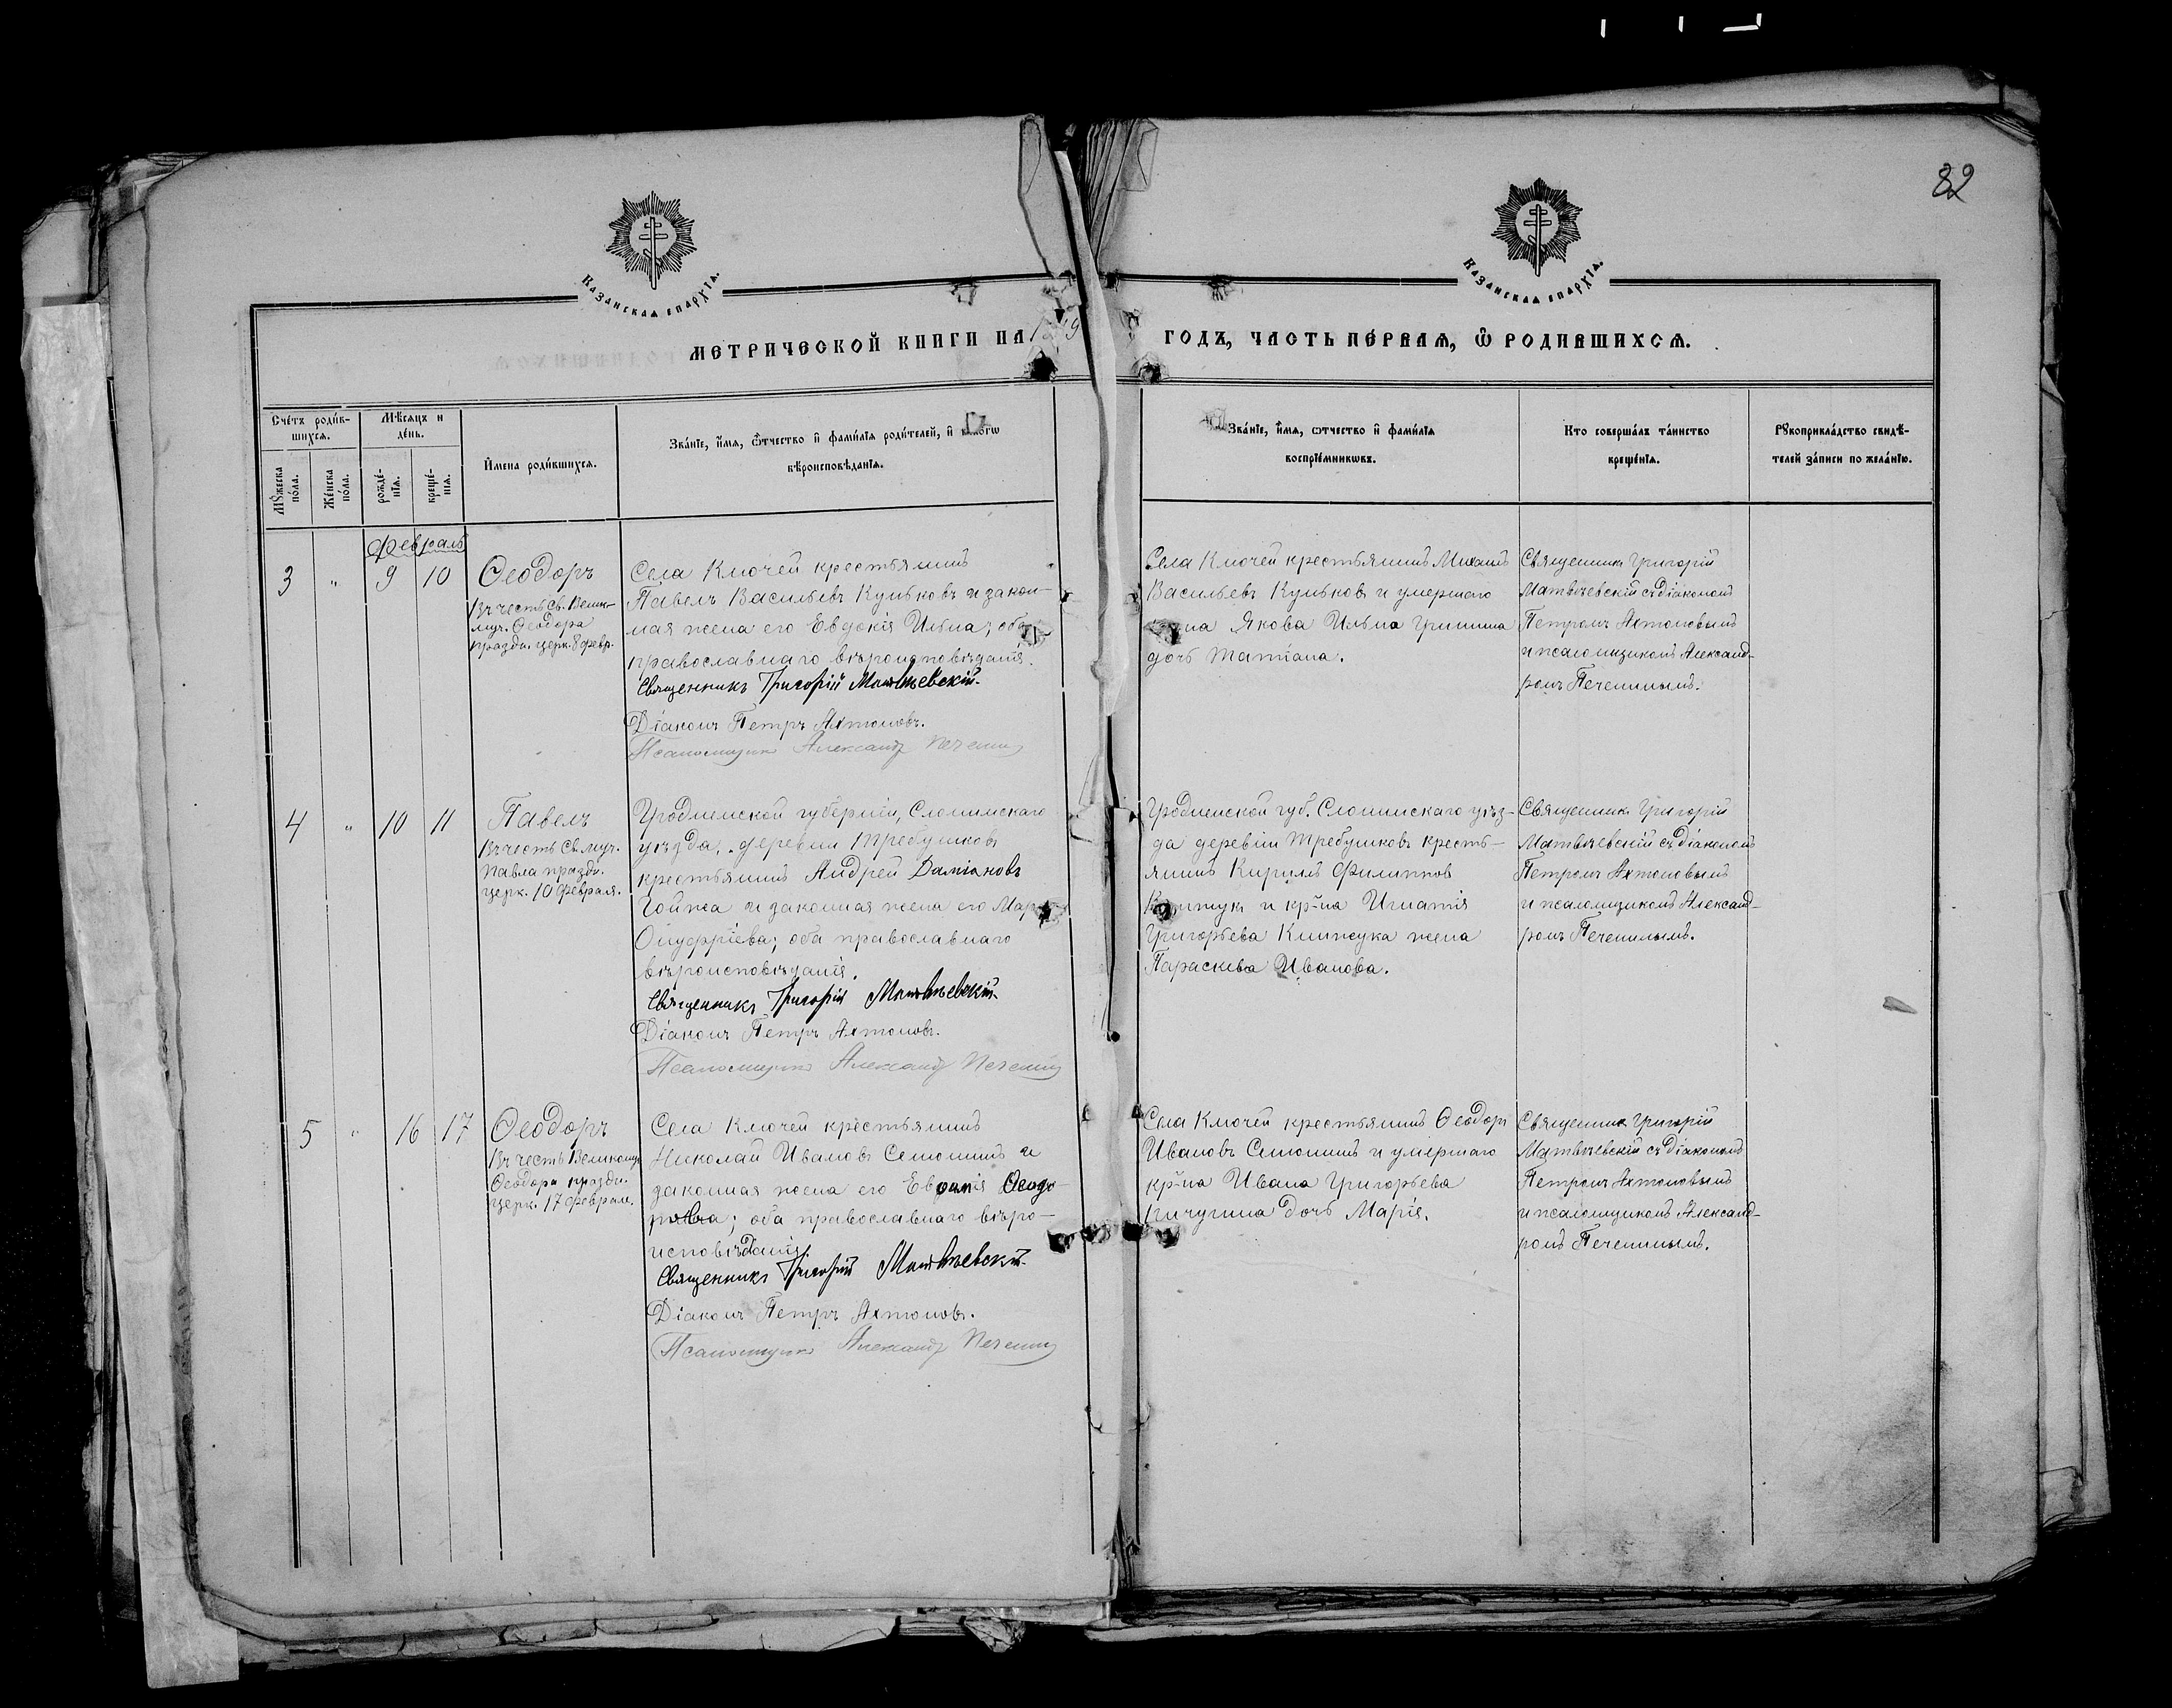 82
Казанская епархїѧ.
Казанская епархїѧ.
МЕТРИЧЕСКОЙ КНИГИ НА
ГОДЪ, ЧАСТЬ ПЕ́РВАѦ, Ѽ РОДИВШИХСѦ.
Сче́тъ роди́в-
шихсѧ.
Мѣ́сѧцъ и
де́нь.
Мꙋ́жеска
по́ла.
Же́нска
по́ла.
рожде́-
нїѧ.
креще́-
нїѧ.
И҆мена роди́вшихсѧ.
Зва́нїе, и҆́мѧ, ѻ҆́тчество и҆ фами́лїѧ роди́телей, и҆
вѣ́роисповѣ́данїѧ.
Зва́нїе, и҆́мѧ, ѻтчество и҆ фами́лїѧ
воспрїе́мникѡвъ.
Кто соверша́лъ та́инство
креще́нїѧ.
Рꙋкоприкла́дство свидѣ́-
телей за́писи по жела́нїю.
Февраль
3 " 9 10
Ѳеодоръ
Въ честь Св. Велик-
муч. Ѳеодора
праздн. церк. 8 февр.
Села Ключей крестьянинъ
Павелъ Васильевъ Кульковъ и закон-
ная жена его Евдокія Ильина; оба
православнаго вѣроисповѣданія.
Священникъ Григорій Матвѣевскій.
Діаконъ Петръ Ахтоновъ.
Псаломщикъ Александръ Печенинъ
Села Ключей крестьянинъ Михаилъ
Васильевъ Кульковъ и умершаго
Якова Ильина Гришина
дочь Татіана.
Священникъ Григорій
Матвѣевскій съ діакономъ
Петромъ Ахтоновымъ
и псаломщикомъ Александ-
ромъ Печенинымъ.
4 " 10 11
Павелъ
Въ честь Св. муч.
Павла праздн.
церк. 10 февраля.
Гродненской губерніи, Слонимскаго
уѣзда, деревни Требушковъ
крестьянинъ Андрей Даміановъ
Гойжа и законная жена его
Онуфріева; оба православнаго
вѣроисповѣданія.
Священникъ Григорій Матвѣевскій.
Діаконъ Петръ Ахтоновъ.
Псаломщикъ Александръ Печенинъ
Гродненской губ. Слонимскаго уѣз-
да деревни Требушковъ кресть-
янинъ Кириллъ Филипповъ
и кр-на Игнатія
Григорьева Клинжука жена
Параскева Иванова.
Священникъ Григорій
Матвѣевскій съ діакономъ
Петромъ Ахтоновымъ
и псаломщикомъ Александ-
ромъ Печенинымъ.
5 " 16 17
Ѳеодоръ
Въ честь Великомуч.
Ѳеодора праздн.
церк. 17 феврал.
Села Ключей крестьянинъ
Николай Ивановъ Сетюнинъ и
законная жена его Ѳеодо-
рова; оба православнаго вѣро-
исповѣданія.
Священникъ Григорій Матвѣевскій.
Діаконъ Петръ Ахтоновъ.
Псаломщикъ Александръ Печенинъ
Села Ключей крестьянинъ Ѳеодоръ
Ивановъ Сетюнинъ и умершаго
кр-на Ивана Григорьева
Пичугина дочь Марія.
Священникъ Григорій
Матвѣевскій съ діакономъ
Петромъ Ахтоновымъ
и псаломщикомъ Александ-
ромъ Печенинымъ.